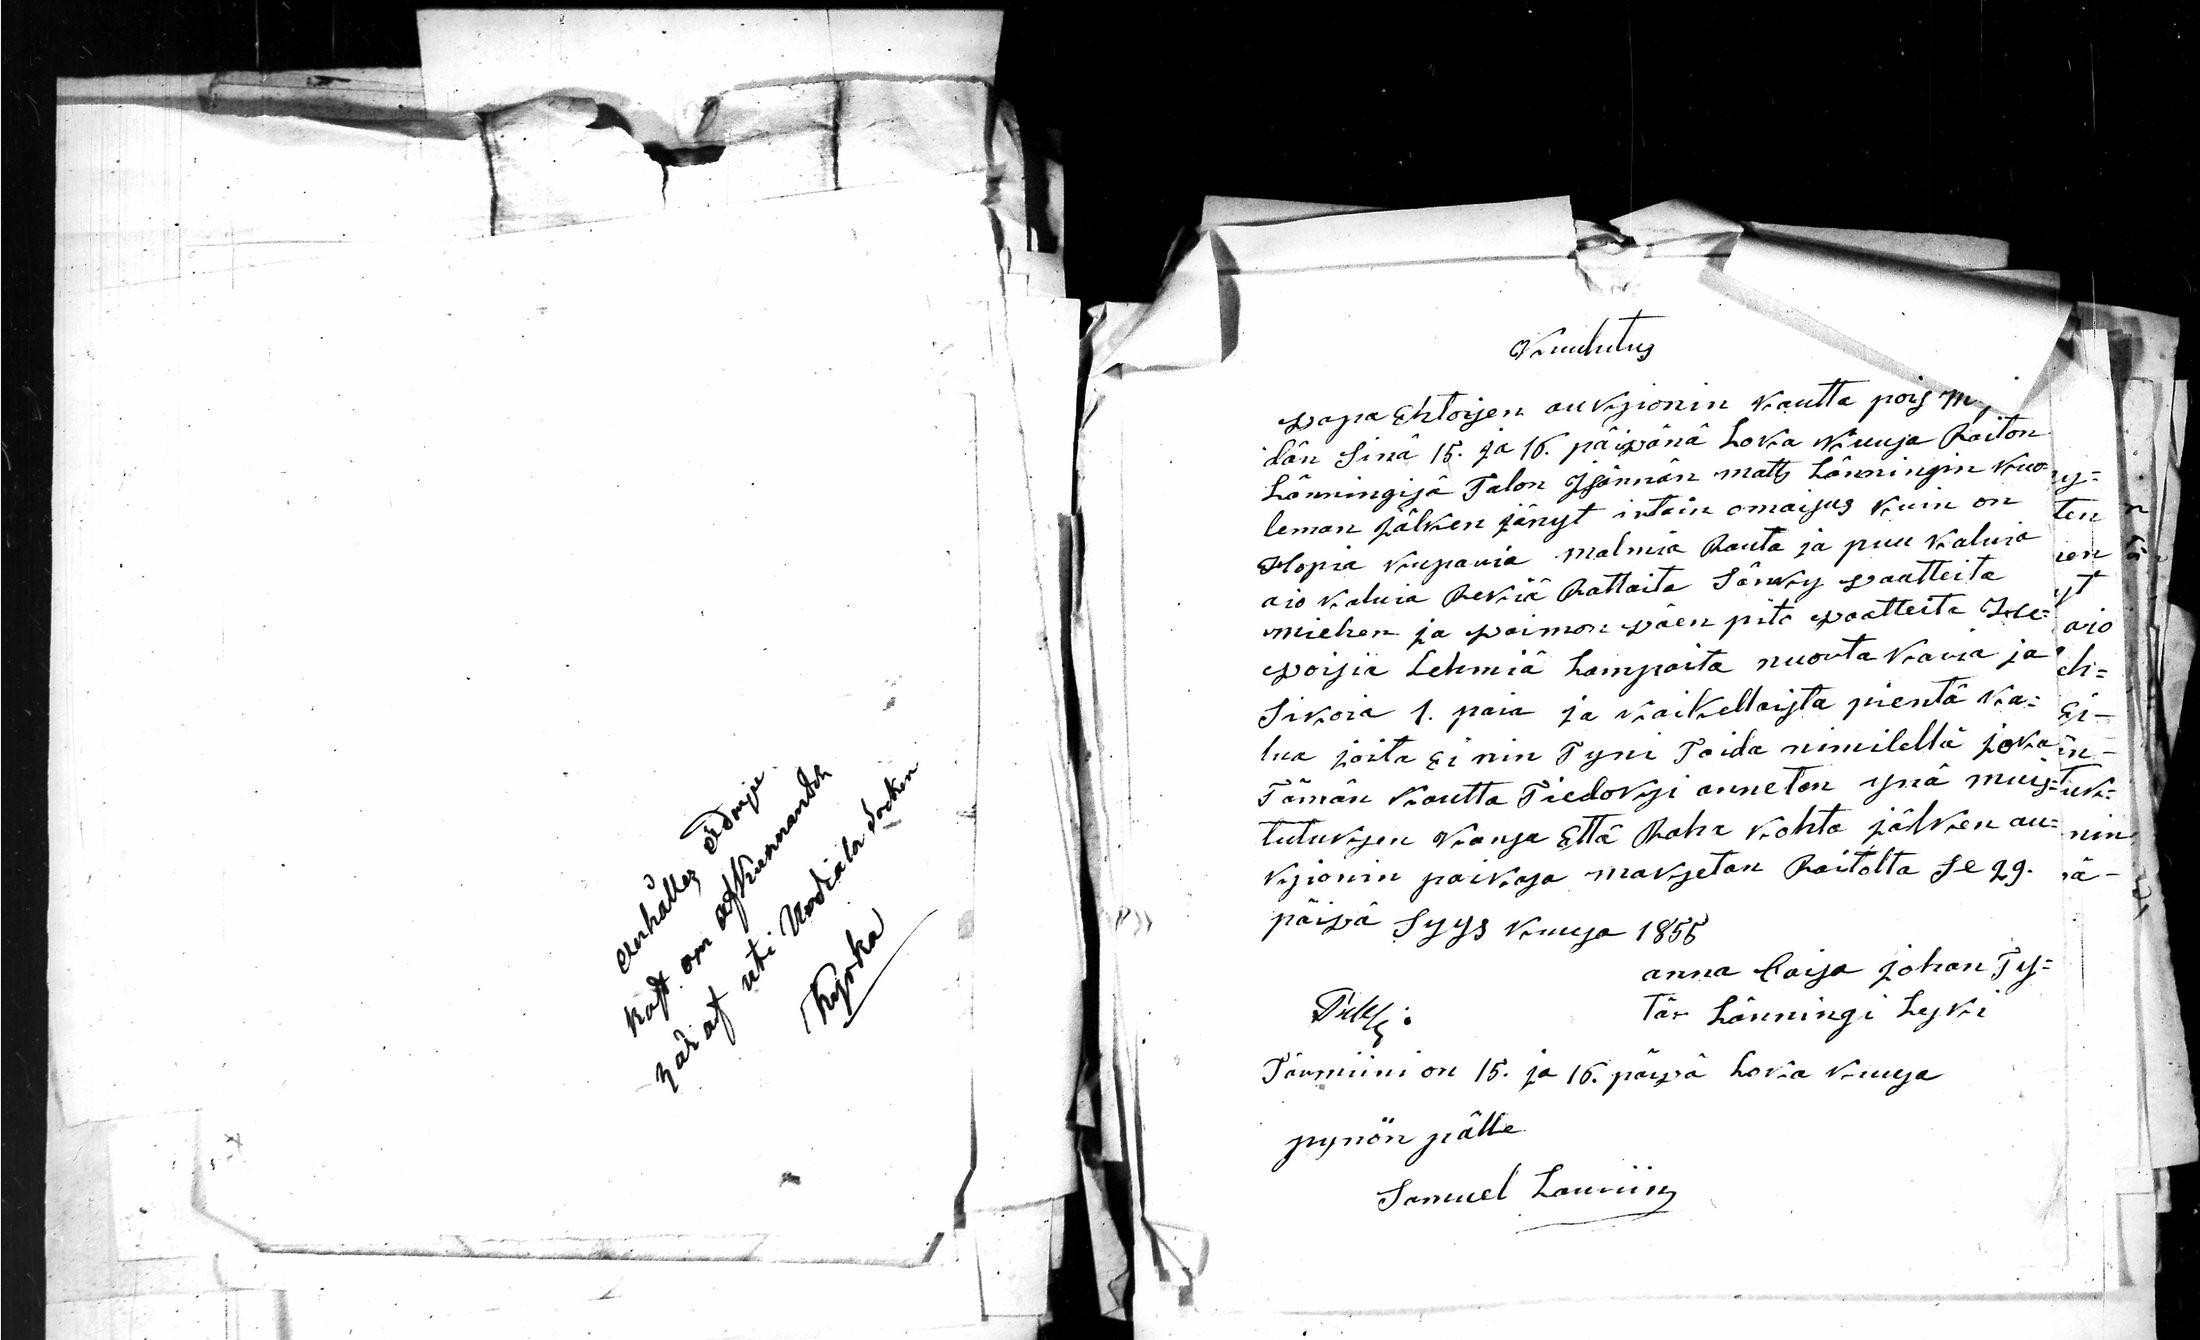 anhålles ödmju
kast om afkunnande
häraf uti Urdiala Socken
Kyrka
Kuulutus
vapa Ehtoisen aukzionin kautta pois my
dän Sinä 15. ja 16. päivänä Loka kuusa Raiton
Länningisä Talon Isännän matts Länningin kuo=
leman jälken jänyt irtain omaisus kuin on
Hopia kuparia malmia Rauta ja puu kaluia
aio kaluia Rekiä Rattaita Sänky vaatteita
miehen ja vaimon väen pito vaatteita He=
voisia Lehmiä Lampaita nuorta karia ja
Sikoia 1. paia ja kaikellaista pientä ka=
lua joita Ei nin Tyni Taida nimilellä joka
Tämän kautta Tiedoksi anneten ynä muis=
tutuksen kansa Että Raha kohta jälken au=
kzionin paikasa maksetan Raitolta Se 29.
päivä Syys kuusa 1855
anna Caisa johan Ty=
tär Länningi Leski
Tärmiini on 15. ja 16. päivä Loka kuusa
pynön pälle
Samuel Lauriin